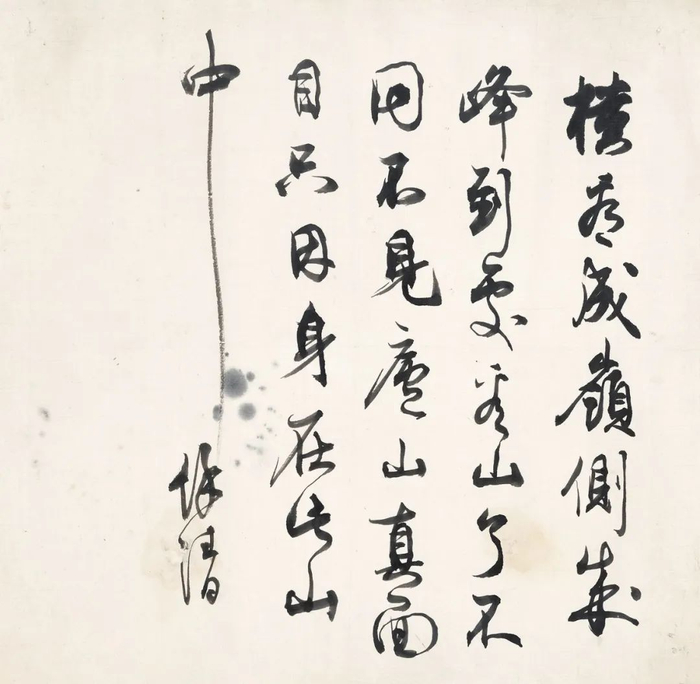 橫看成嶺側成
峰到處看山了不
同不見廬山真面
目只因身在此山
中
徐